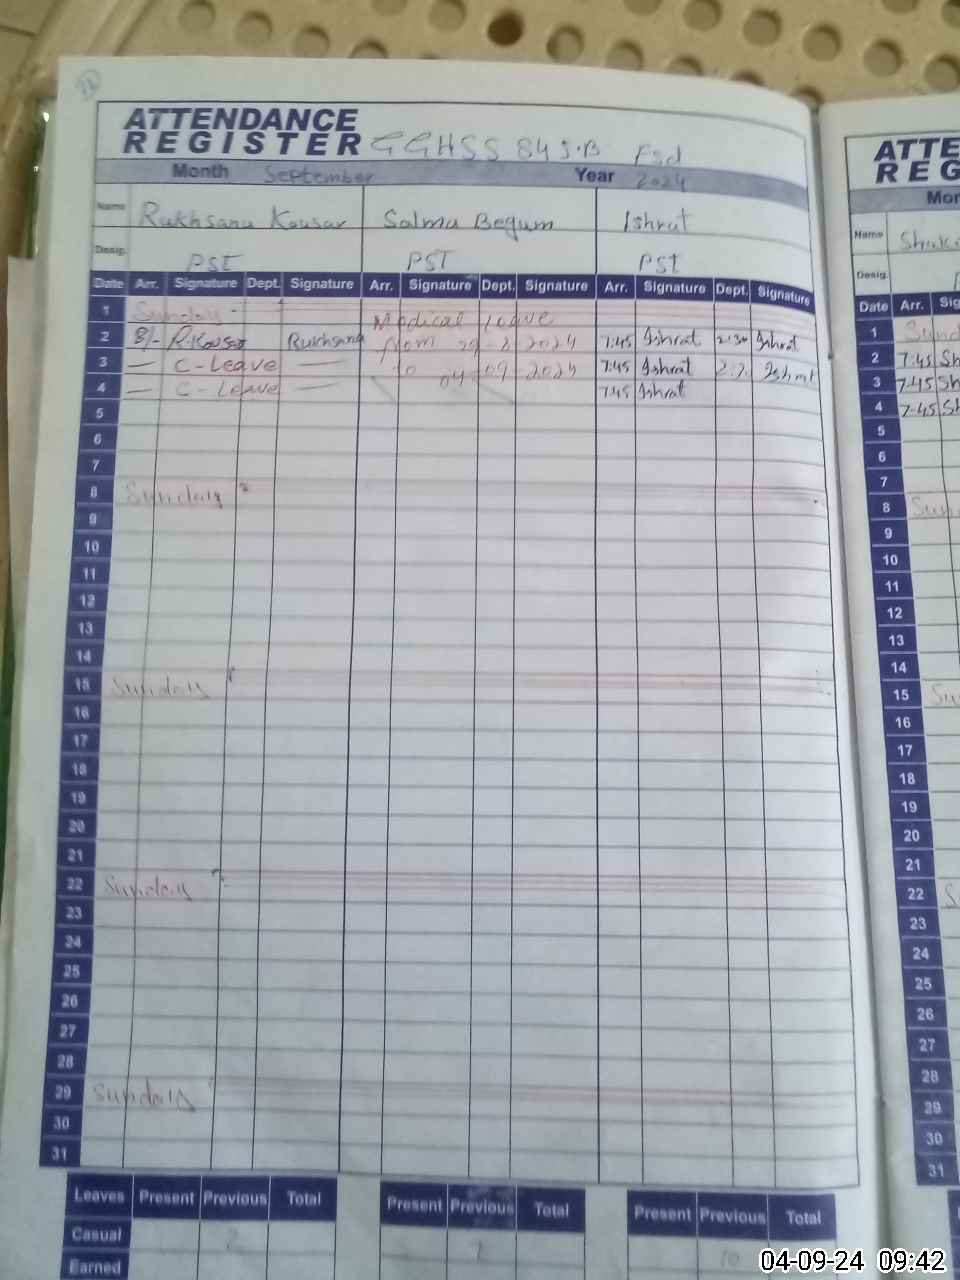 ATTENDANCE
REGISTER GGHSS 84 J.B Fsd
Month September Year 2024
Name Rukhsana Kousar Salma Begum Ishrat
Desig. PST PST PST
Date Arr. Signature Dept. Signature Arr. Signature Dept. Signature Arr. Signature Dept. Signature
1 Sunday Medical Leave
2 8/- R.Kousar Rukhsana From 29-8-2024 7:45 Ishrat 2:30 Ishrat
3 — C-Leave — to 04-09-2024 7:45 Ishrat Ishrat
4 — C-Leave — 7:45 Ishrat
5
6
7
8 Sunday
9
10
11
12
13
14
15 Sunday
16
17
18
19
20
21
22 Sunday
23
24
25
26
27
28
29 Sunday
30
31
Leaves Present Previous Total Present Previous Total Present Previous Total
Casual 2 10
Earned
ATTE
REG
Mon
Name Shak
Desig.
Date Arr. Sig
1 Sund
2 7:45 Sh
3 7:45 Sh
4 7:45 Sh
5
6
7
8 Sun
9
10
11
12
13
14
15 Su
16
17
18
19
20
21
22 S
23
24
25
26
27
28
29
30
31
04-09-24 09:42